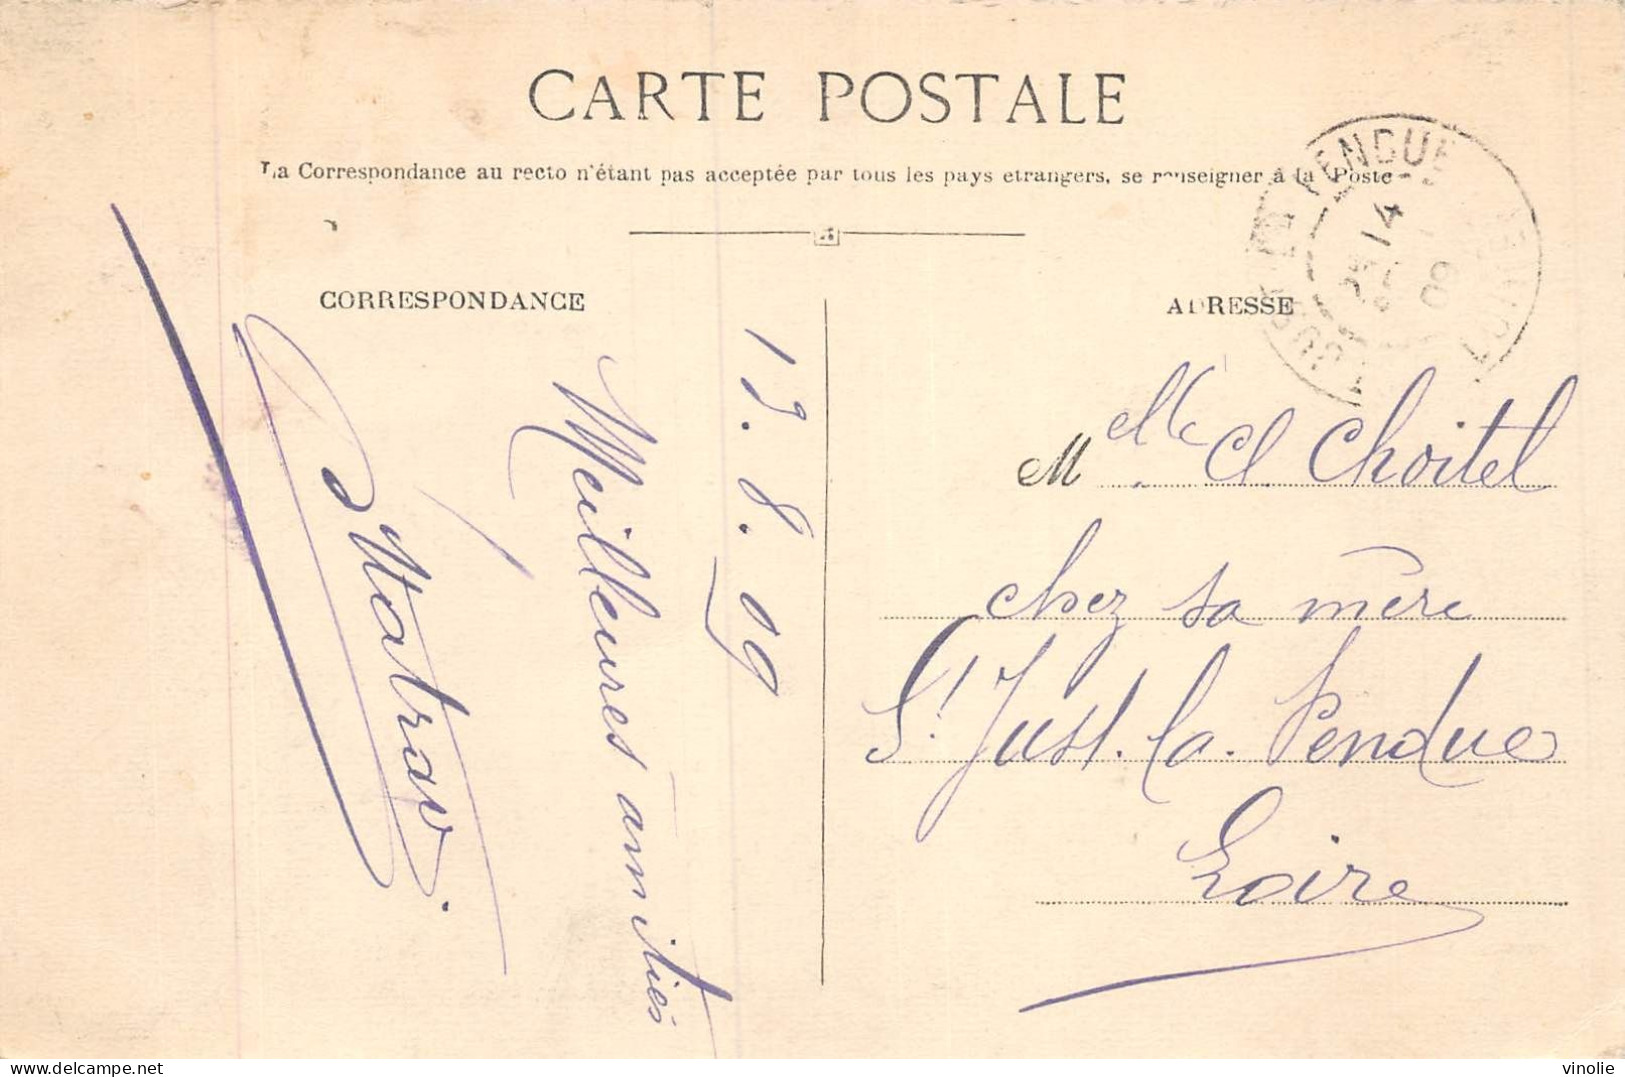 CARTE POSTALE
La Correspondance au recto n'étant pas acceptée par tous les pays etrangers, se renseigner à la Poste
CORRESPONDANCE
ADRESSE
13.8.09
Meilleures amitiés
Matrav
M Mlle Cl. Choitel
chez sa mère
St Just. la. Pendue
Loire
PENDUE
14
09
LOIRE
delcampe.net
vinolie